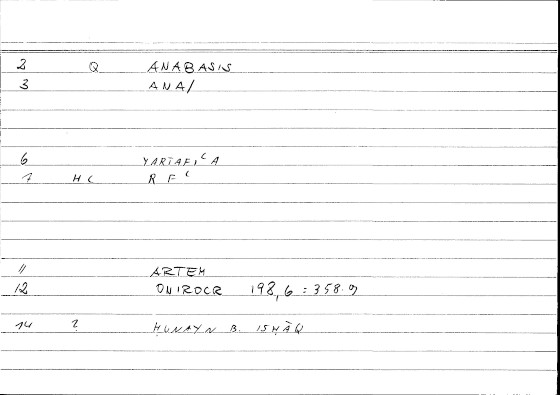 2 Q ANABASIS
3 ANA/
6 YARTAFIʿA
7 HC RFʿ
11 ARTEM
12 ONIROCR 198,6 : 358.9
14 2 ḤUNAYN B. ISḤĀQ